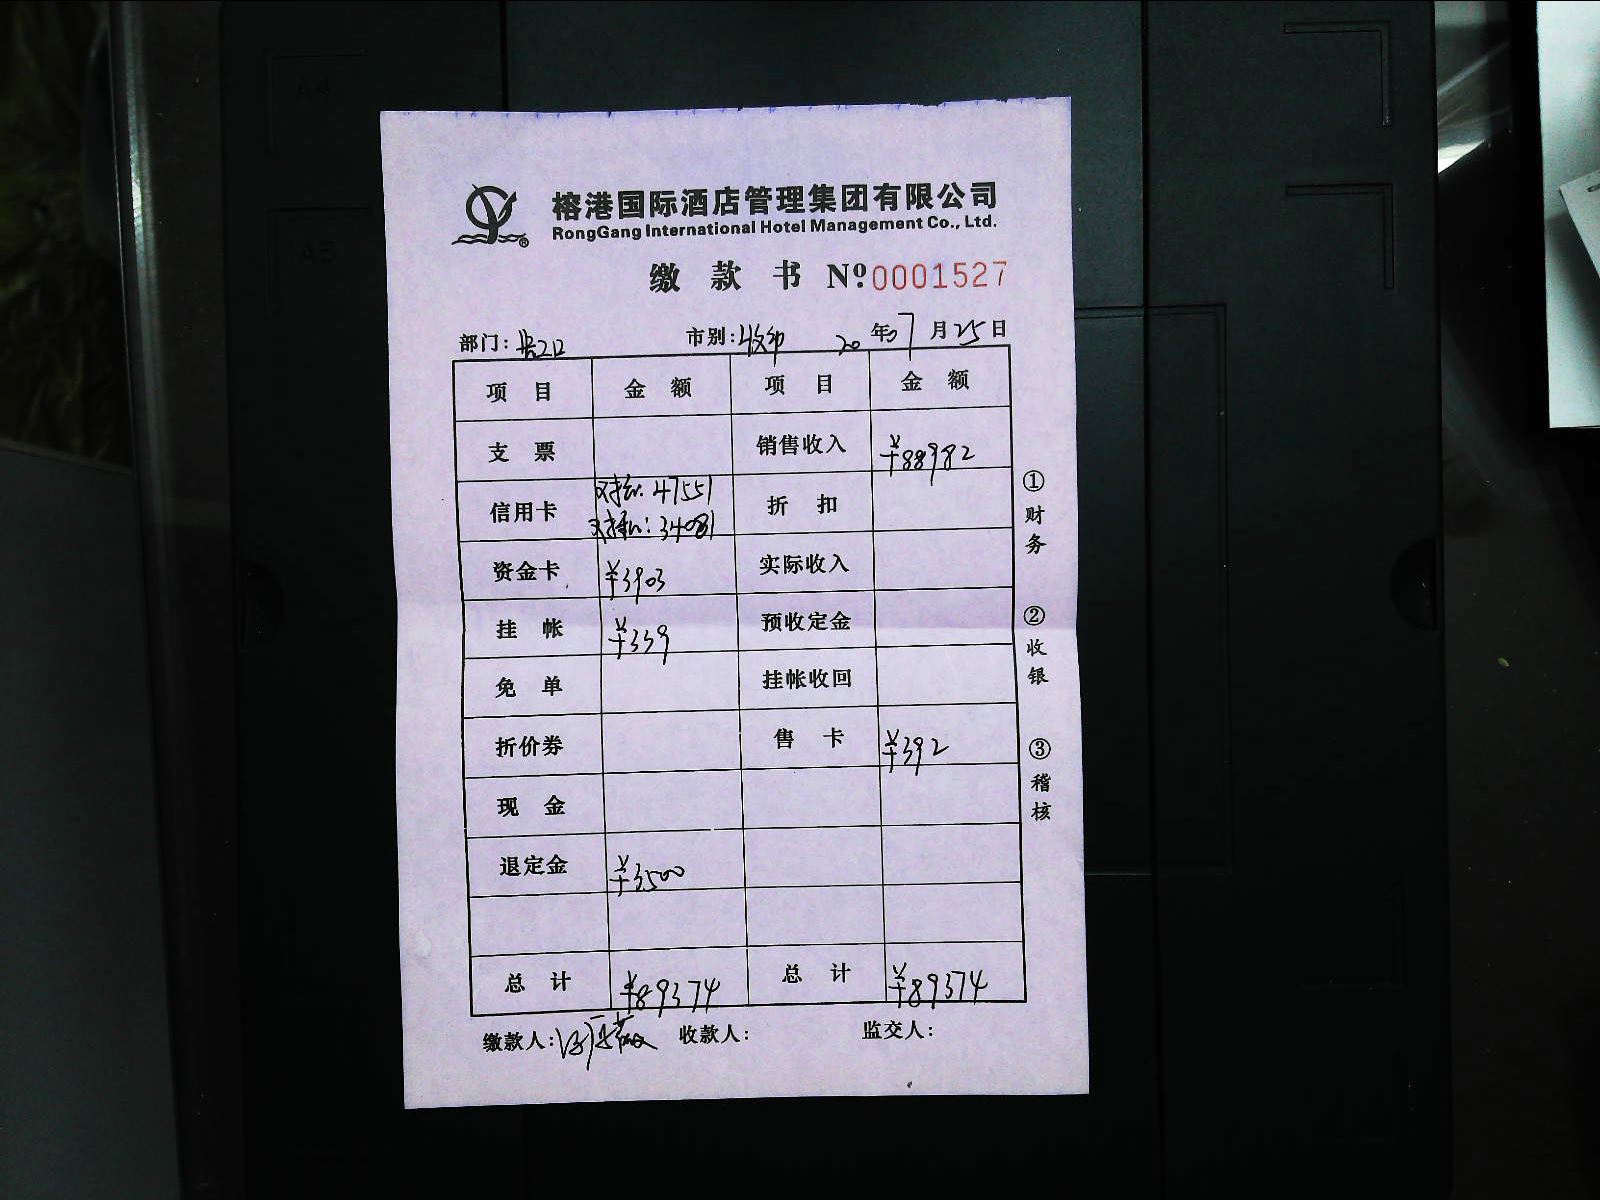 榕港国际酒店管理集团有限公司
RongGang International Hotel Management Co., Ltd.
缴 款 书 Nº:0001527
部门: 市别:收银 20 年 7 月 25 日
项 目 金 额 项 目 金 额
支 票 销售收入 ¥88982
信用卡 对接: 47551 折 扣
对接: 34081
资金卡 ¥3903 实际收入
挂 帐 ¥339 预收定金
免 单 挂帐收回
折价券 售 卡 ¥392
现 金
退定金 ¥3500
总 计 ¥89374 总 计 ¥89374
缴款人: 收款人: 监交人:
①财务
②收银
③稽核
A4
A5